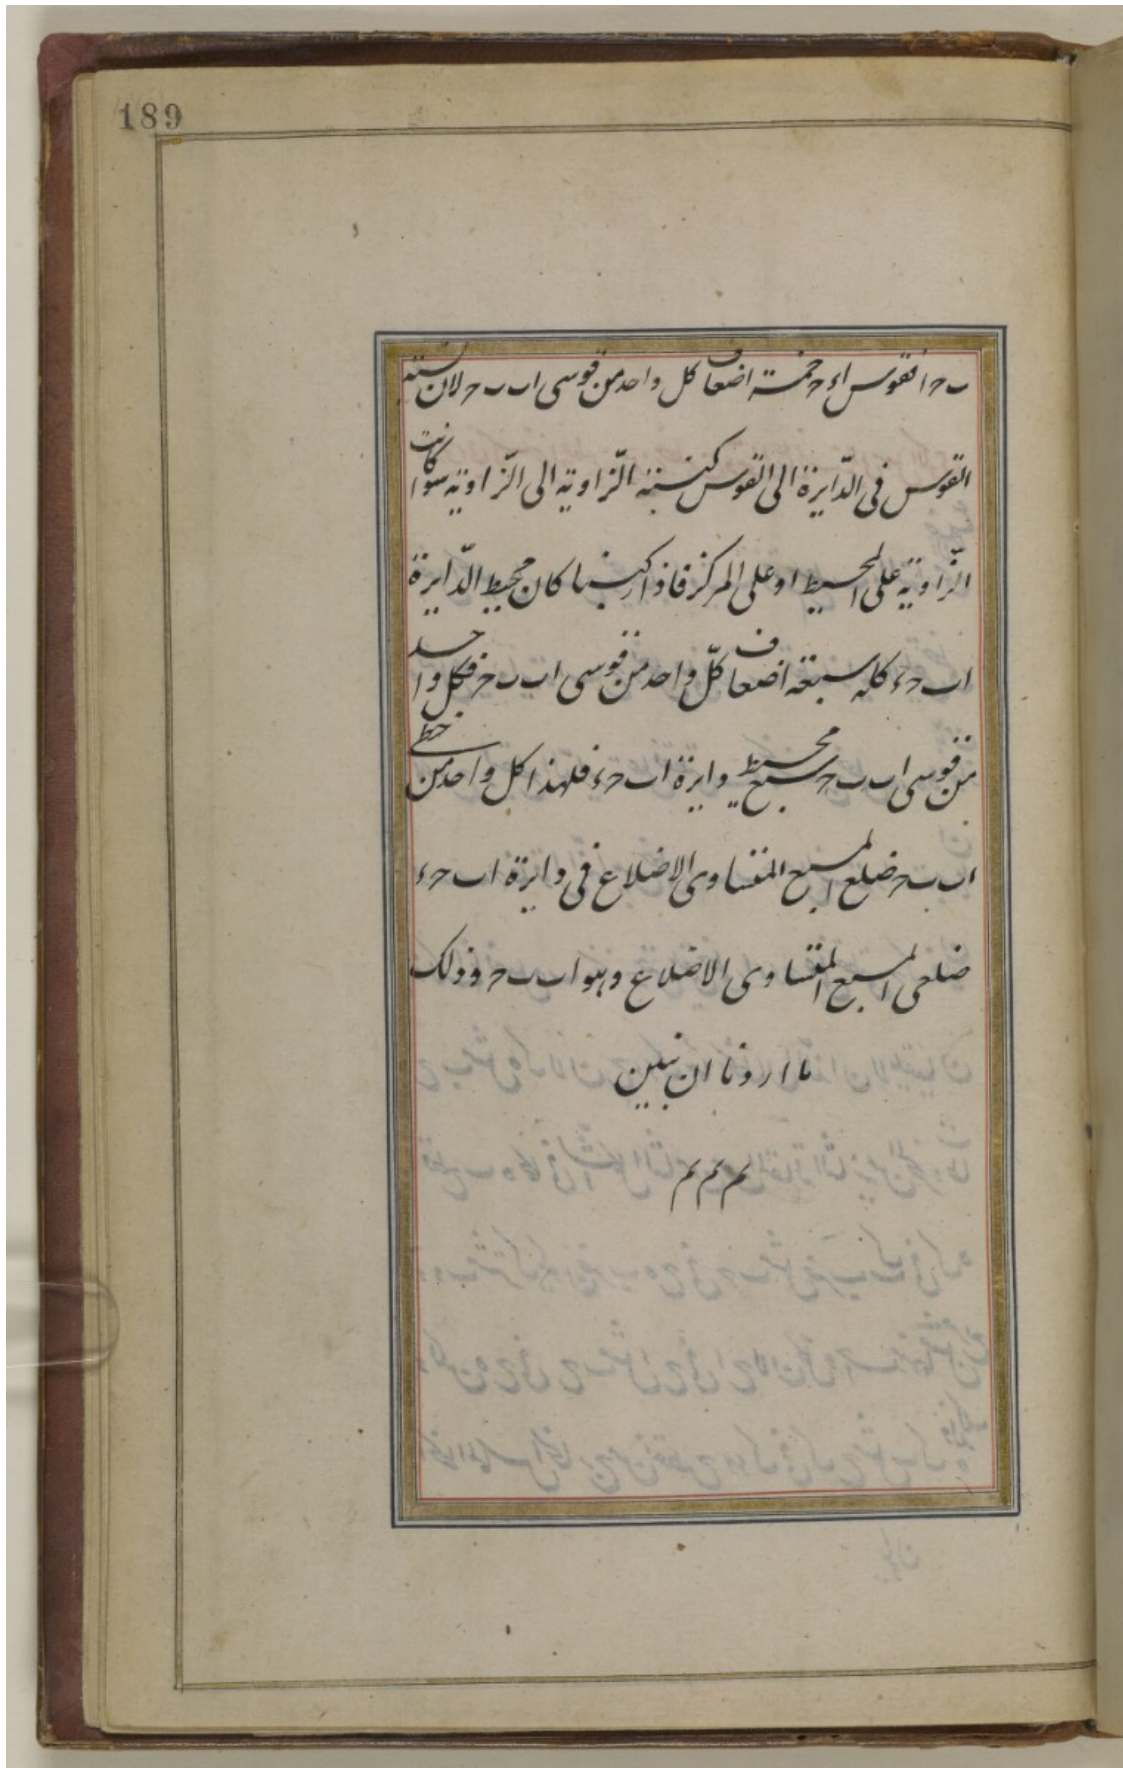 189
ب حـ ا فقوس ا ء حـ خمسة اضعاف كل واحد من قوسى ا ب ب حـ لان نسبة
القوس فى الدّايرة الى القوس كنسبة الزّاوية الى الزّاوية سوا كانت
الزّاوية على المحيط او على المركز فاذا ركبنا كان محيط الدّايرة
ا ب حـ ء كله سبعة اضعاف كلّ واحد من قوسى ا ب ب حـ فكل واحد
من قوسى ا ب ب حـ سبع محيط دايرة ا ب حـ ء فلهذا كل واحد من خطى
ا ب ب حـ ضلع المسبع المتساوى الاضلاع فى دايرة ا ب حـ ء
ضلعى المسبع المتساوى الاضلاع وهو ا ب ب حـ وذلك
ما اردنا ان نبين